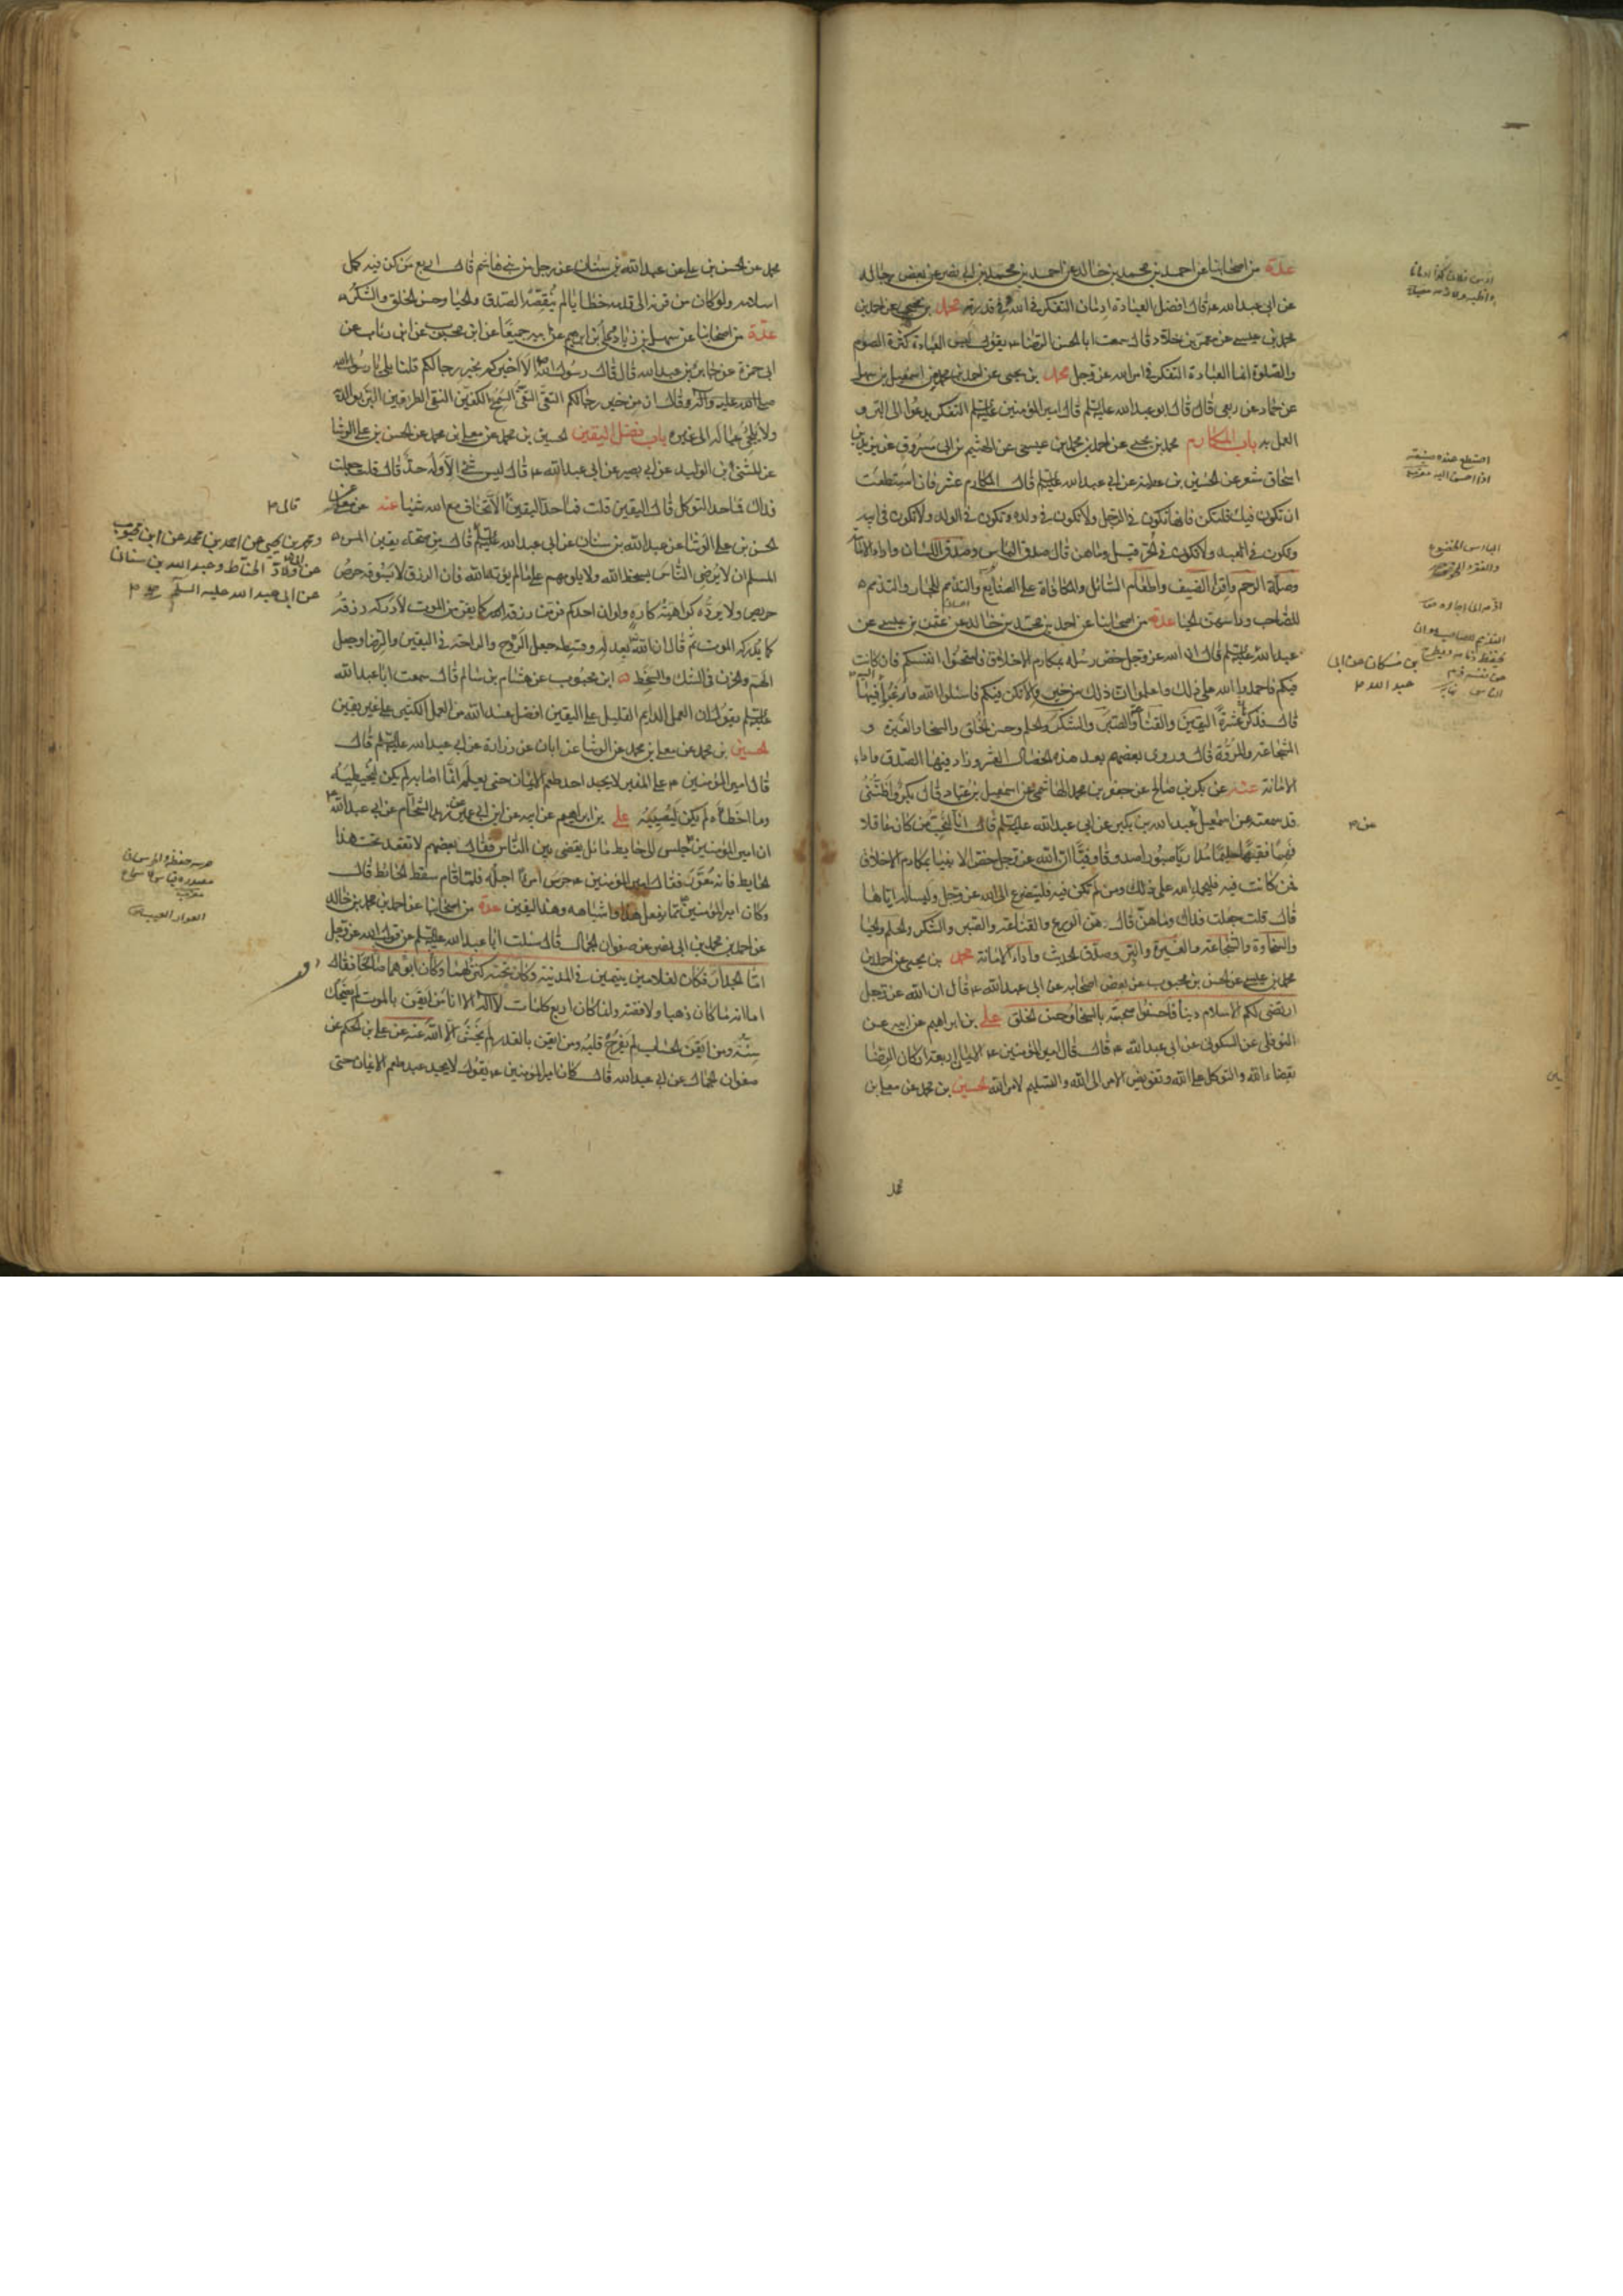 عدة من اصحابنا عن احمد بن محمد بن خالد عن احمد بن محمد بن ابي نصر عن بعض رجاله
عن ابي عبد الله ع قال افضل العبادة ادمان التفكر في الله وفي قدرته محمد بن يحيى عن احمد بن
محمد بن عيسى عن معمر بن خلاد قال سمعت ابا الحسن الرضا ع يقول ليس العبادة كثرة الصوم
والصلوة انما العبادة التفكر في امر الله عز وجل محمد بن يحيى عن احمد بن محمد عن اسمعيل بن سهل
عن حماد عن ربعي قال قال ابو عبد الله عليه السلم قال امير المؤمنين عليه السلم التفكر يدعوا الى البر و
العمل به باب المكارم محمد بن يحيى عن احمد بن محمد بن عيسى عن الهيثم بن ابي مسروق عن يزيد بن
اسحاق شعر عن الحسين بن عطية عن ابي عبد الله عليه السلم قال المكارم عشر فان استطعت
ان تكون فيك فلتكن فانها تكون في الرجل ولا تكون في ولده وتكون في الولد ولا تكون في ابيه
وتكون في العبد ولا تكون في الحر قيل وما هن قال صدق الباس وصدق اللسان واداء الامانة
وصلة الرحم واقراء الضيف واطعام السائل والمكافاة على الصنايع والتذمم للجار والتذمم
للصاحب وراسهن الحيا عدة من اصحابنا عن احمد بن محمد بن خالد عن عثمن بن عيسى عن
عبد الله عليه السلم قال ان الله عز وجل خص رسله بمكارم الاخلاق فامتحنوا انفسكم فان كانت
فيكم فاحمدوا الله على ذلك واعلموا ان ذلك من خير والا تكن فيكم فاسئلوا الله وارغبوا اليه فيها
قال فذكر عشرة اليقين والقناعة والصبر والشكر والحلم وحسن الخلق والسخا والغيرة و
الشجاعة والمروة قال وروى بعضهم بعد هذه الخصال العشر وزاد فيها الصدق واداء
الامانة عنه عن بكر بن صالح عن جعفر بن محمد الهاشمي عن اسمعيل بن عباد قال بكر واظنني
قد سمعته من اسمعيل عبد الله بن بكير عن ابي عبد الله عليه السلم قال انا لنحب من كان عاقلا
فهما فقيها حليما مداريا صبورا صدوقا وفيا ان الله عز وجل خص الانبيا بمكارم الاخلاق
فمن كانت فيه فليحمد الله على ذلك ومن لم تكن فيه فليتضرع الى الله عز وجل وليسأله اياها
قال قلت جعلت فداك وما هن قال هن الورع والقناعة والصبر والشكر والحلم والحيا
والسخاوة والشجاعة والغيرة والبر وصدق الحديث واداء الامانة محمد بن يحيى عن احمد بن
محمد بن عيسى عن الحسن بن محبوب عن بعض اصحابه عن ابي عبد الله ع قال ان الله عز وجل
ارتضى لكم الاسلام دينا فاحسنوا صحبته بالسخا وحسن الخلق علي بن ابراهيم عن ابيه عن
النوفلي عن السكوني عن ابي عبد الله ع قال قال امير المؤمنين ع الايمان اربعة اركان الرضا
بقضاء الله والتوكل على الله وتفويض الامر الى الله والتسليم لامر الله الحسين بن محمد عن معلى بن
محمد
بن مسكان عن ابي
عبد الله
محمد عن الحسن بن علي عن عبد الله بن سنان عن رجل من بني هاشم قال اربع من كن فيه كمل
اسلامه ولو كان من قرنه الى قدمه خطايا لم ينقصه الصدق والحيا وحسن الخلق والشكر
عدة من اصحابنا عن سهل بن زياد وعلي بن ابراهيم عن ابيه جميعا عن ابن محبوب عن ابن رئاب عن
ابي حمزة عن جابر بن عبد الله قال قال رسول الله الا اخبركم بخير رجالكم قلنا بلى يا رسول الله
صلى الله عليه وآله وقال ان من خير رجالكم التقي النقي السمح الكفين النقي الطرفين البر بوالديه
ولا يلجئ عياله الى غيره باب فضل اليقين الحسين بن محمد عن معلى بن محمد عن الحسن بن علي الوشا
عن المثنى بن الوليد عن ابي بصير عن ابي عبد الله ع قال ليس شئ الا وله حد قال قلت جعلت
فداك فما حد التوكل قال اليقين قلت فما حد اليقين الا تخاف مع الله شيئا عنه عن معلى عن
الحسن بن علي الوشا عن عبد الله بن سنان عن ابي عبد الله عليه السلم قال من صحة يقين المرء
المسلم ان لا يرضي الناس بسخط الله ولا يلومهم على ما لم يؤته الله فان الرزق لا يسوقه حرص
حريص ولا يرده كراهية كاره ولو ان احدكم فر من رزقه كما يفر من الموت لادركه رزقه
كما يدركه الموت ثم قال ان الله بعدله وقسطه جعل الروح والراحة في اليقين والرضا وجعل
الهم والحزن في الشك والسخط ابن محبوب عن هشام بن سالم قال سمعت ابا عبد الله
عليه السلم يقول ان العمل الدايم القليل على اليقين افضل عند الله من العمل الكثير على غير يقين
الحسين بن محمد عن معلى بن محمد عن الوشا عن ابان عن زرارة عن ابي عبد الله عليه السلم قال
قال امير المؤمنين ع على المنبر لا يجد احد طعم الايمان حتى يعلم ان ما اصابه لم يكن ليخطيه
وما اخطأه لم يكن ليصيبه علي بن ابراهيم عن ابيه عن ابن ابي عمير عن زيد الشحام عن ابي عبد الله
ان امير المؤمنين جلس الى حايط مائل يقضي بين الناس فقال بعضهم لا تقعد تحت هذا
الحايط فانه معور فقال امير المؤمنين ع حرس امرءا اجله فلما قام سقط الحائط قال
وكان امير المؤمنين مما يفعل هذا واشباهه وهذا اليقين عدة من اصحابنا عن احمد بن محمد بن خالد
عن احمد بن محمد بن ابي نصر عن صفوان الجمال قال سئلت ابا عبد الله عليه السلم عن قول الله عز وجل
اما الجدار فكان لغلامين يتيمين في المدينة وكان تحته كنز لهما وكان ابوهما صالحا فقال
اما انه ما كان ذهبا ولا فضة وانما كان اربع كلمات لا اله الا انا من ايقن بالموت لم يضحك
سنه ومن ايقن الحساب لم يفرح قلبه ومن ايقن بالقدر لم يخش الا الله عنه عن علي بن الحكم عن
صفوان الجمال عن ابي عبد الله قال كان امير المؤمنين ع يقول لا يجد عبد طعم الايمان حتى
ومحمد بن يحيى عن احمد بن محمد عن ابن محبوب
عن ابي ولاد الحناط وعبد الله بن سنان
عن ابي عبد الله عليه السلم